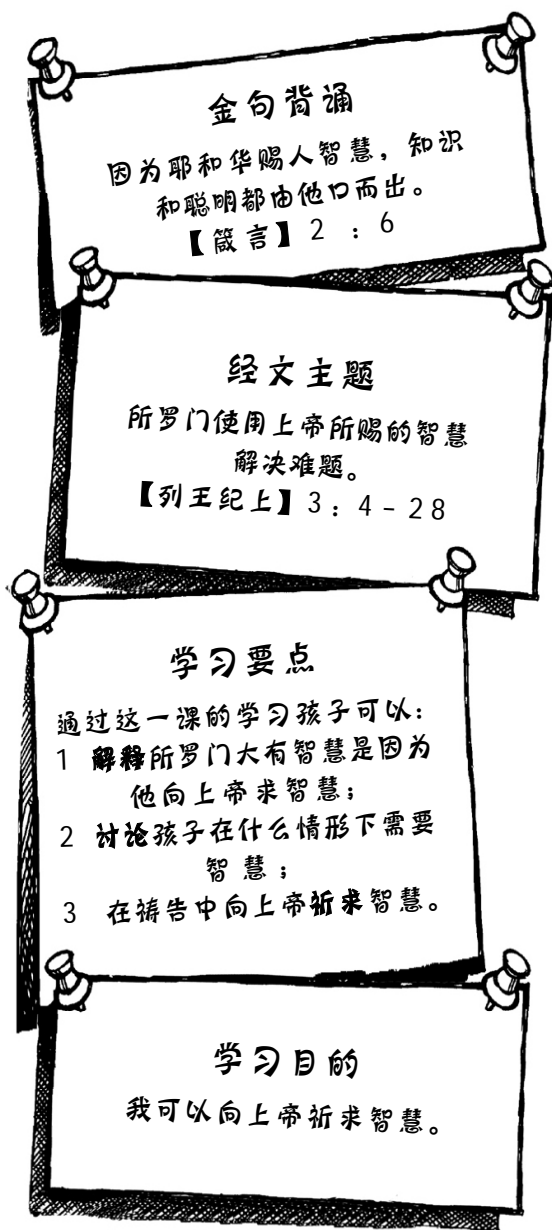 金句背诵
因为耶和华赐人智慧，知识
和聪明都由他口而出。
【箴言】2 : 6
经文主题
所罗门使用上帝所赐的智慧
解决难题。
【列王纪上】3 : 4 - 28
学习要点
通过这一课的学习孩子可以：
1 解释所罗门大有智慧是因为
他向上帝求智慧；
2 讨论孩子在什么情形下需要
智慧；
3 在祷告中向上帝祈求智慧。
学习目的
我可以向上帝祈求智慧。